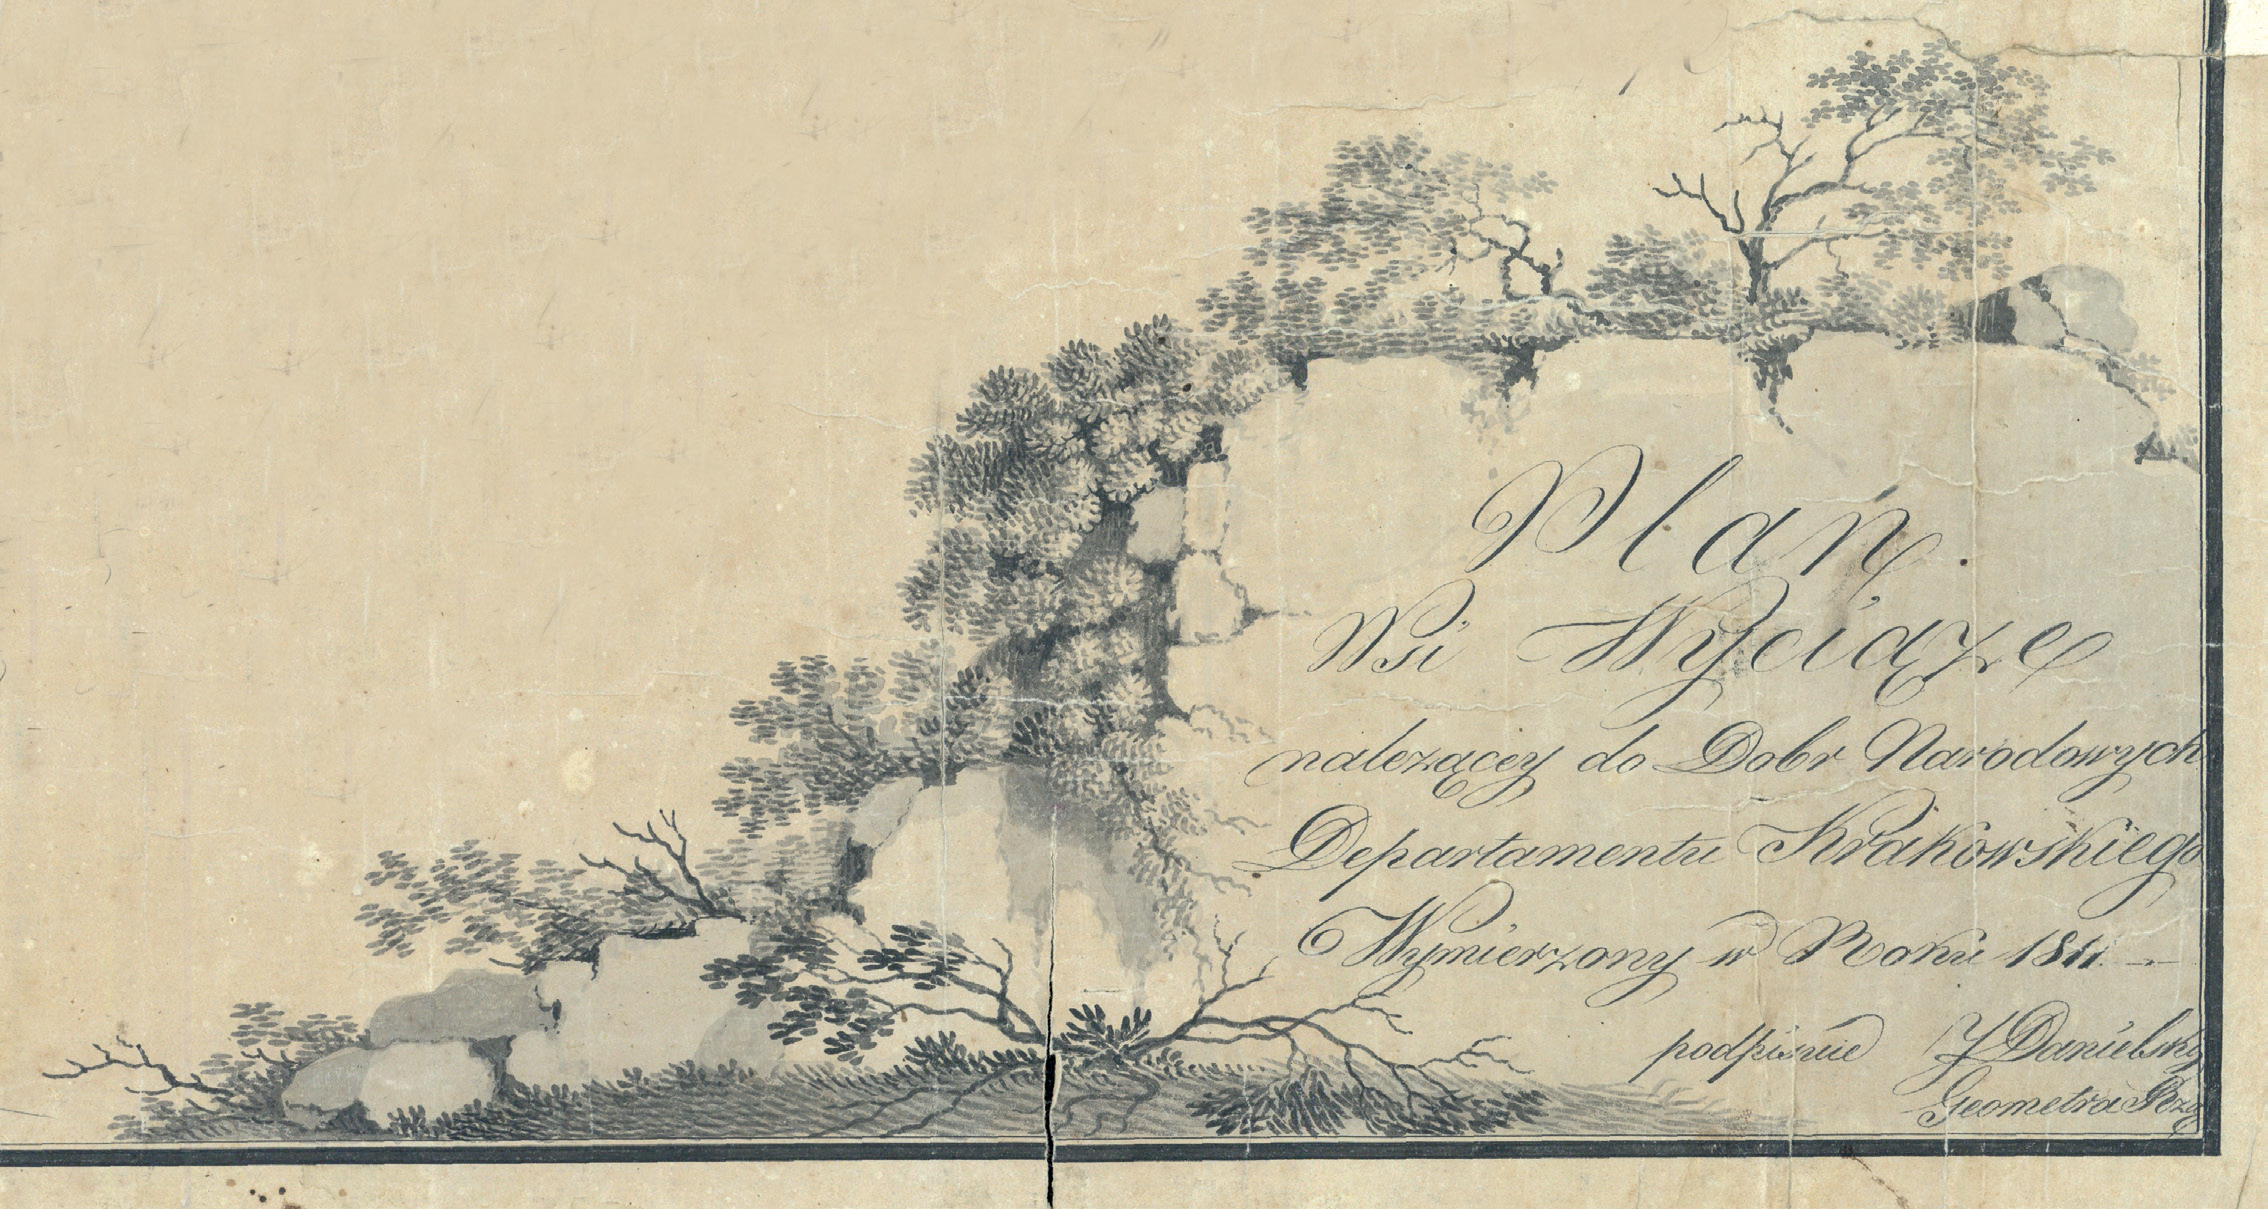 Plan
Wsi Wyciąże
należącey do Dobr Narodowych
Departamentu Krakowskiego
Wymierzony w Roku 1811
podpisnie J Danielsky
Geometra